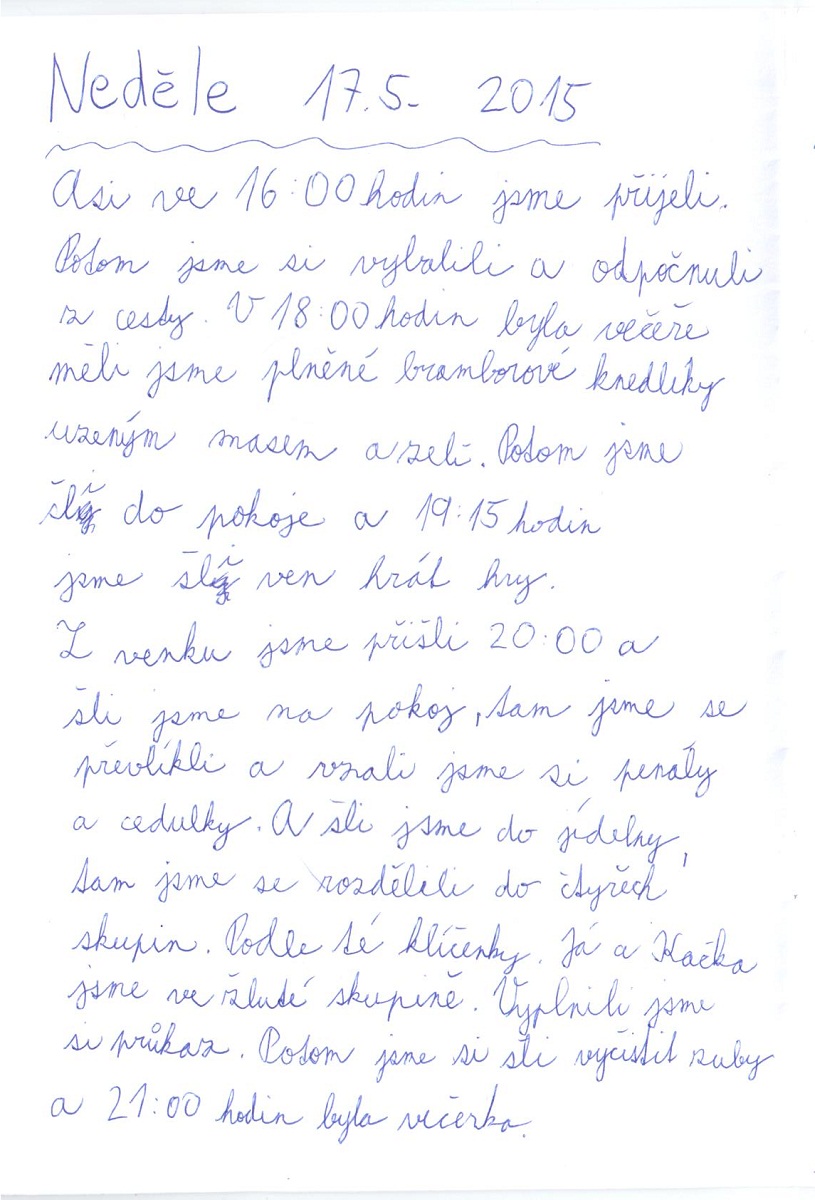 Neděle 17.5. 2015
Asi ve 16:00 hodin jsme přijeli.
Potom jsme si vybalili a odpočnuli
z cesty. V 18:00 hodin byla večeře
měli jsme plněné bramborové knedlíky
uzeným masem a zelí. Potom jsme
šli do pokoje a 19:15 hodin
jsme šli ven hrát hry.
Z venku jsme přišli 20:00 a
šli jsme na pokoj, tam jsme se
převlíkli a vzali jsme si penály
a cedulky. A šli jsme do jídelny,
tam jsme se rozdělili do čtyřech
skupin. Podle té klíčenky. Já a Kačka
jsme ve žluté skupině. Vyplnili jsme
si průkaz. Potom jsme si šli vyčistit zuby
a 21:00 hodin byla večerka.